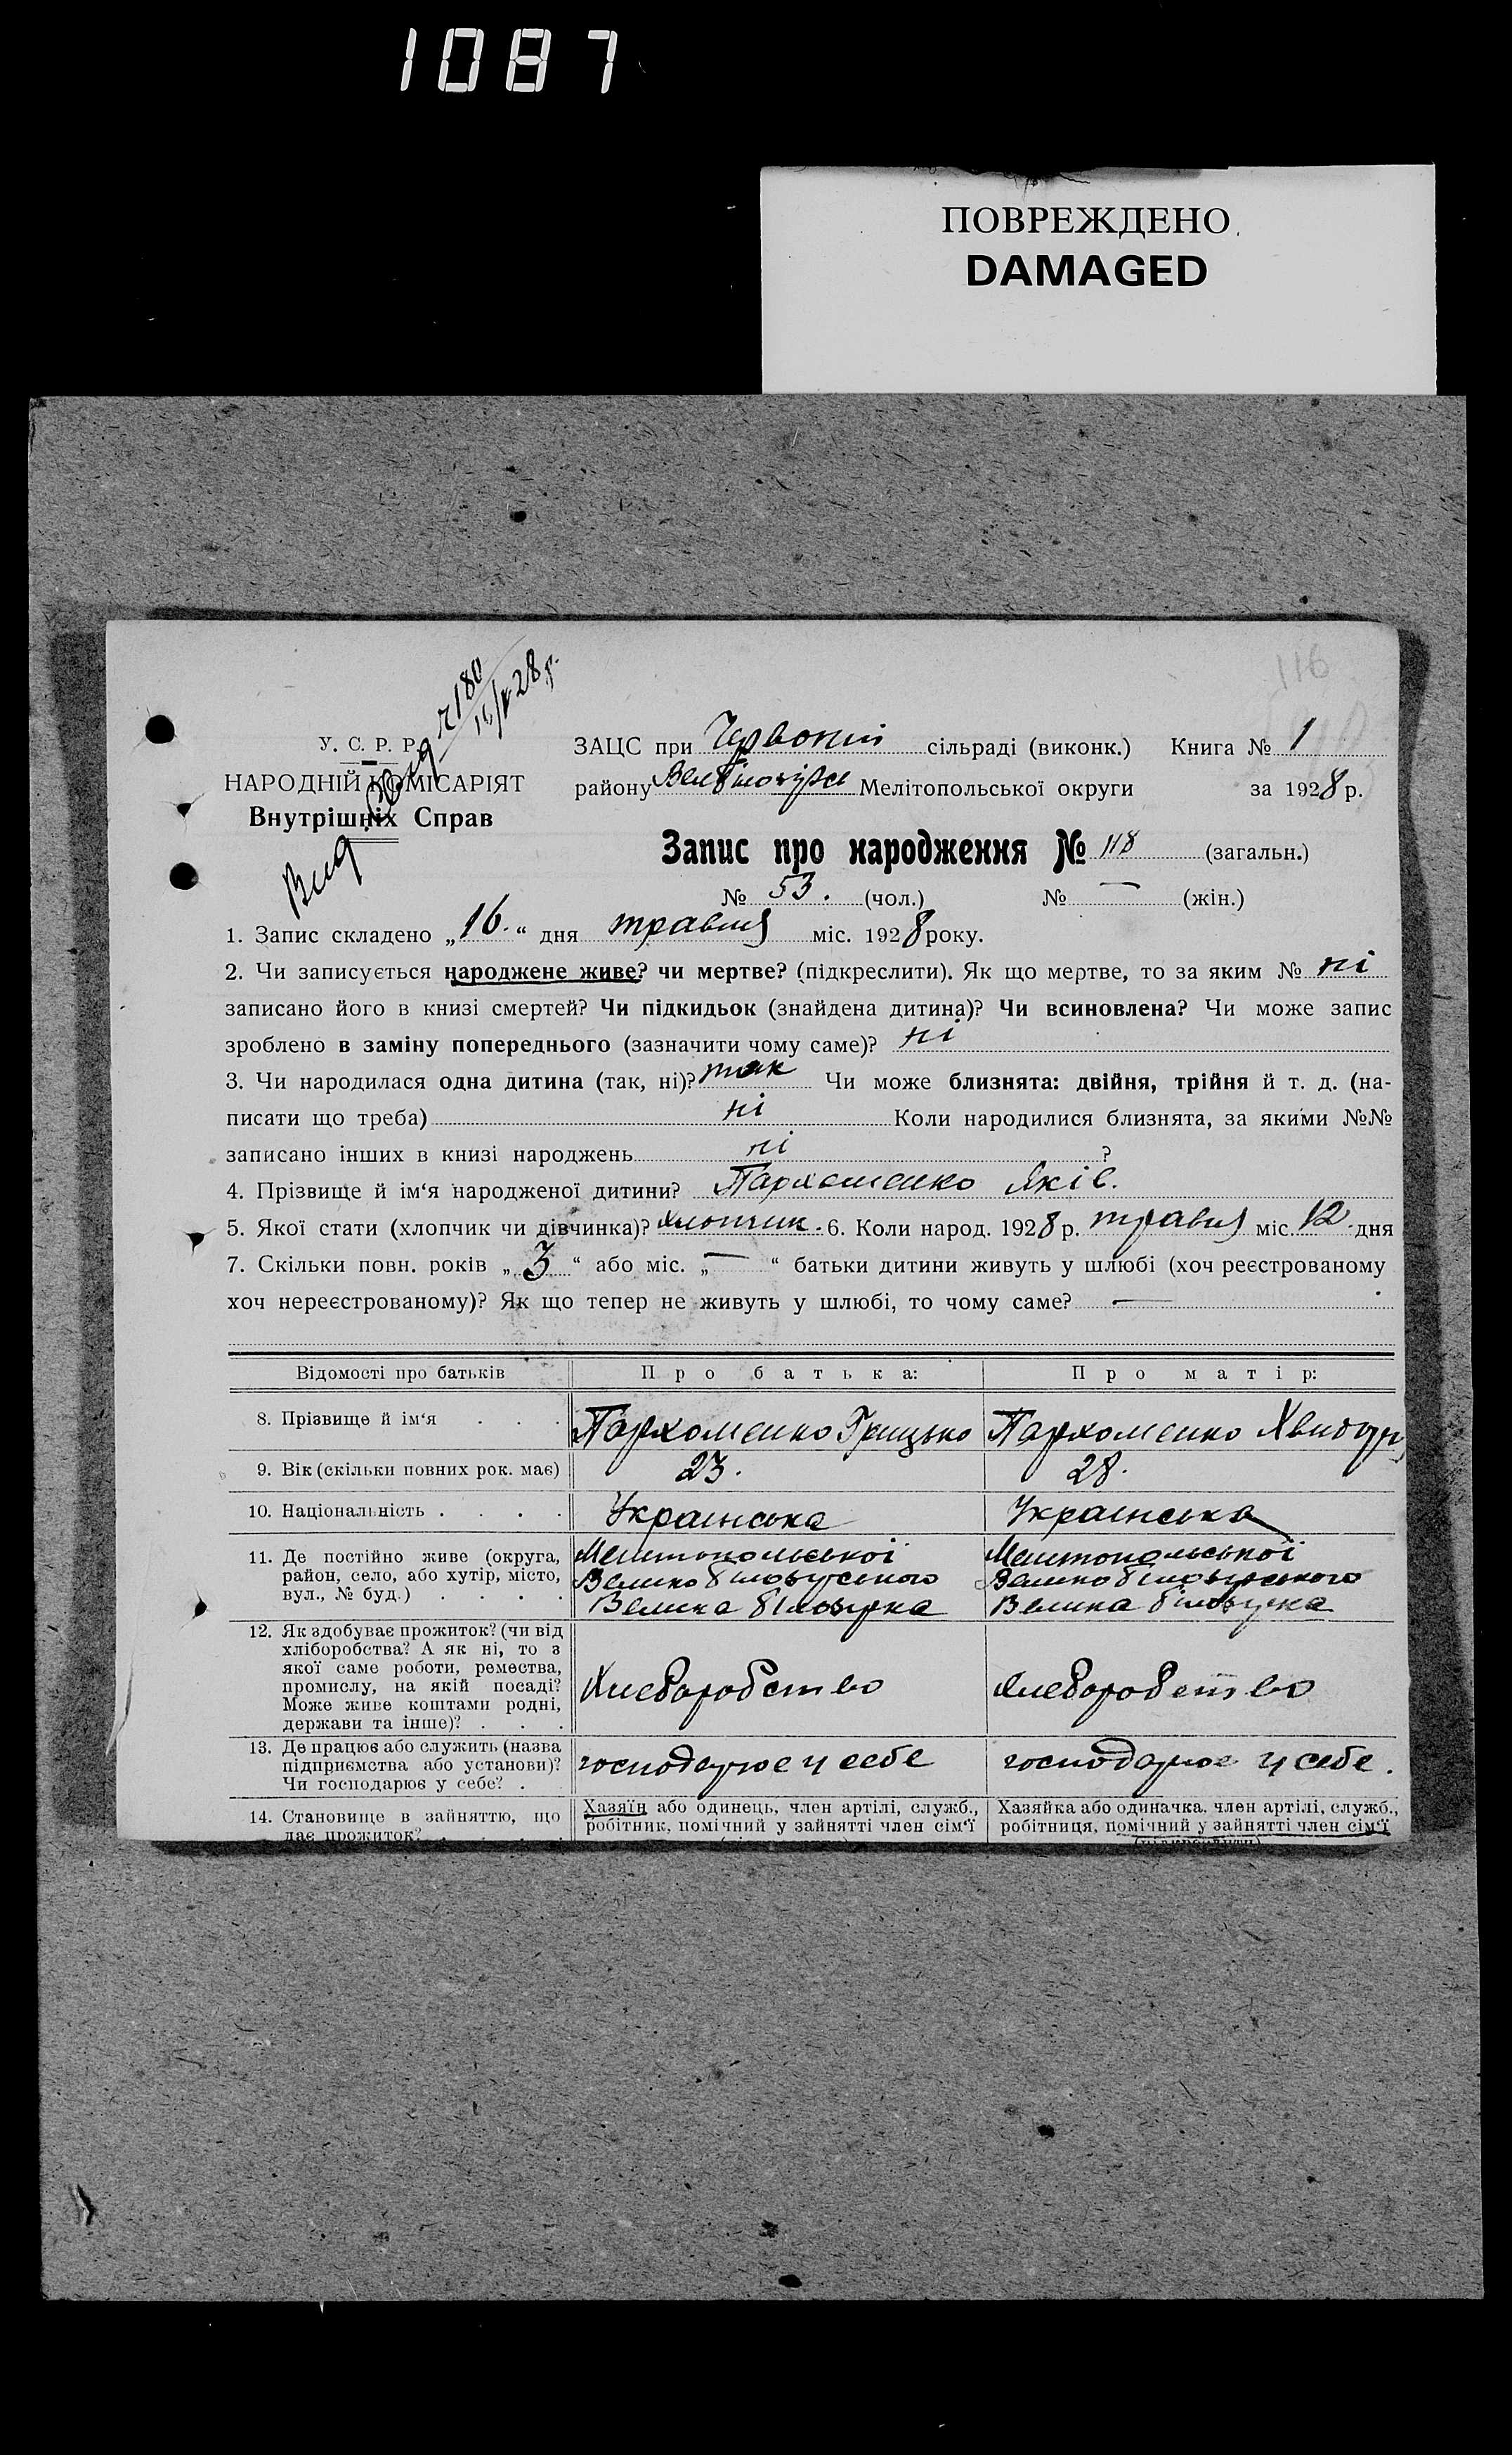 1087
ПОВРЕЖДЕНО
DAMAGED
116
№180
16/V 28 р.
Вид.
У. С. Р. Р.
НАРОДНІЙ КОМІСАРІЯТ
Внутрішніх Справ
ЗАЦС при Червоній сільраді (виконк.) Книга № 1
району Мелітопольської округи за 1928 р.
Запис про народження № 118 (загальн.)
№ 53. (чол.) № — (жін.)
1. Запис складено „16.“ дня травня міс. 1928 року.
2. Чи записується народжене живе? чи мертве? (підкреслити). Як що мертве, то за яким № ні
записано його в книзі смертей? Чи підкидьок (знайдена дитина)? Чи всиновлена? Чи може запис
зроблено в заміну попереднього (зазначити чому саме)? ні
3. Чи народилася одна дитина (так, ні)? так Чи може близнята: двійня, трійня й т. д. (на-
писати що треба) ні Коли народилися близнята, за якими №№
записано інших в книзі народжень ні ?
4. Прізвище й ім‘я народженої дитини? Пархоменко Яків.
5. Якої стати (хлопчик чи дівчинка)? хлопчик. 6. Коли народ. 1928 р. травня міс. 12. дня
7. Скільки повн. років „3“ або міс. „—“ батьки дитини живуть у шлюбі (хоч реєстрованому
хоч нереєстрованому)? Як що тепер не живуть у шлюбі, то чому саме? —
Відомості про батьків Про батька: Про матір:
8. Прізвище й ім‘я . . . Пархоменко Грицько Пархоменко
9. Вік (скільки повних рок. має) 23. 28.
10. Національність . . . . Українська Українська
11. Де постійно живе (округа, Мелітопольської Мелітопольської
район, село, або хутір, місто, Великобілозурського Великобілозурського
вул., № буд.) . . . . Велика білозурка Велика білозурка
12. Як здобуває прожиток? (чи від
хліборобства? А як ні, то з
якої саме роботи, ремества,
промислу, на якій посаді? Хлеборобство хлеборобство
Може живе коштами родні,
держави та інше)? . . .
13. Де працює або служить (назва
підприємства або установи)? господарює у себе господарює у себе.
Чи господарює у себе? .
14. Становище в зайняттю, що Хазяїн або одинець, член артілі, служб., Хазяйка або одиначка, член артілі, служб.,
дає прожиток? . . . . робітник, помічний у зайнятті член сім‘ї робітниця, помічний у зайнятті член сім‘ї